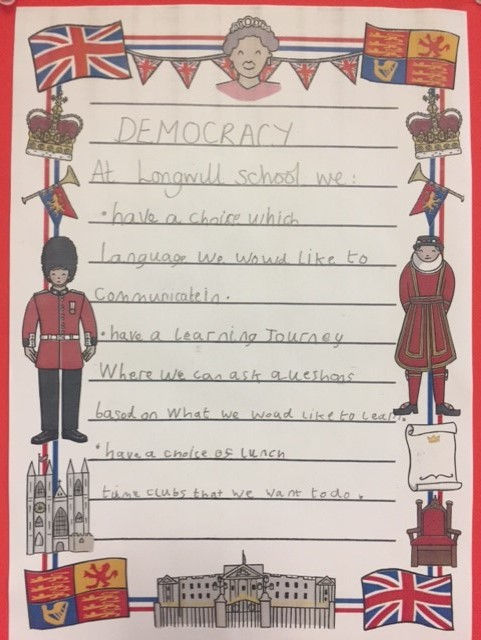 DEMOCRACY
At Longwill school we:
• have a choice which
language we would like to
communicate in.
• have a learning Journey
Where we can ask questions
based on what we woud like to learn.
• have a choice of lunch
time clubs that we want to do.